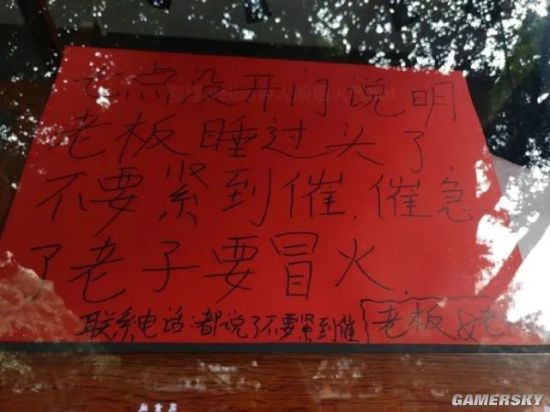 七点没开门说明
老板睡过头了
不要紧到催,催急
了老子要冒火.
联系电话:都说了不要紧到催 老板
GAMERSKY